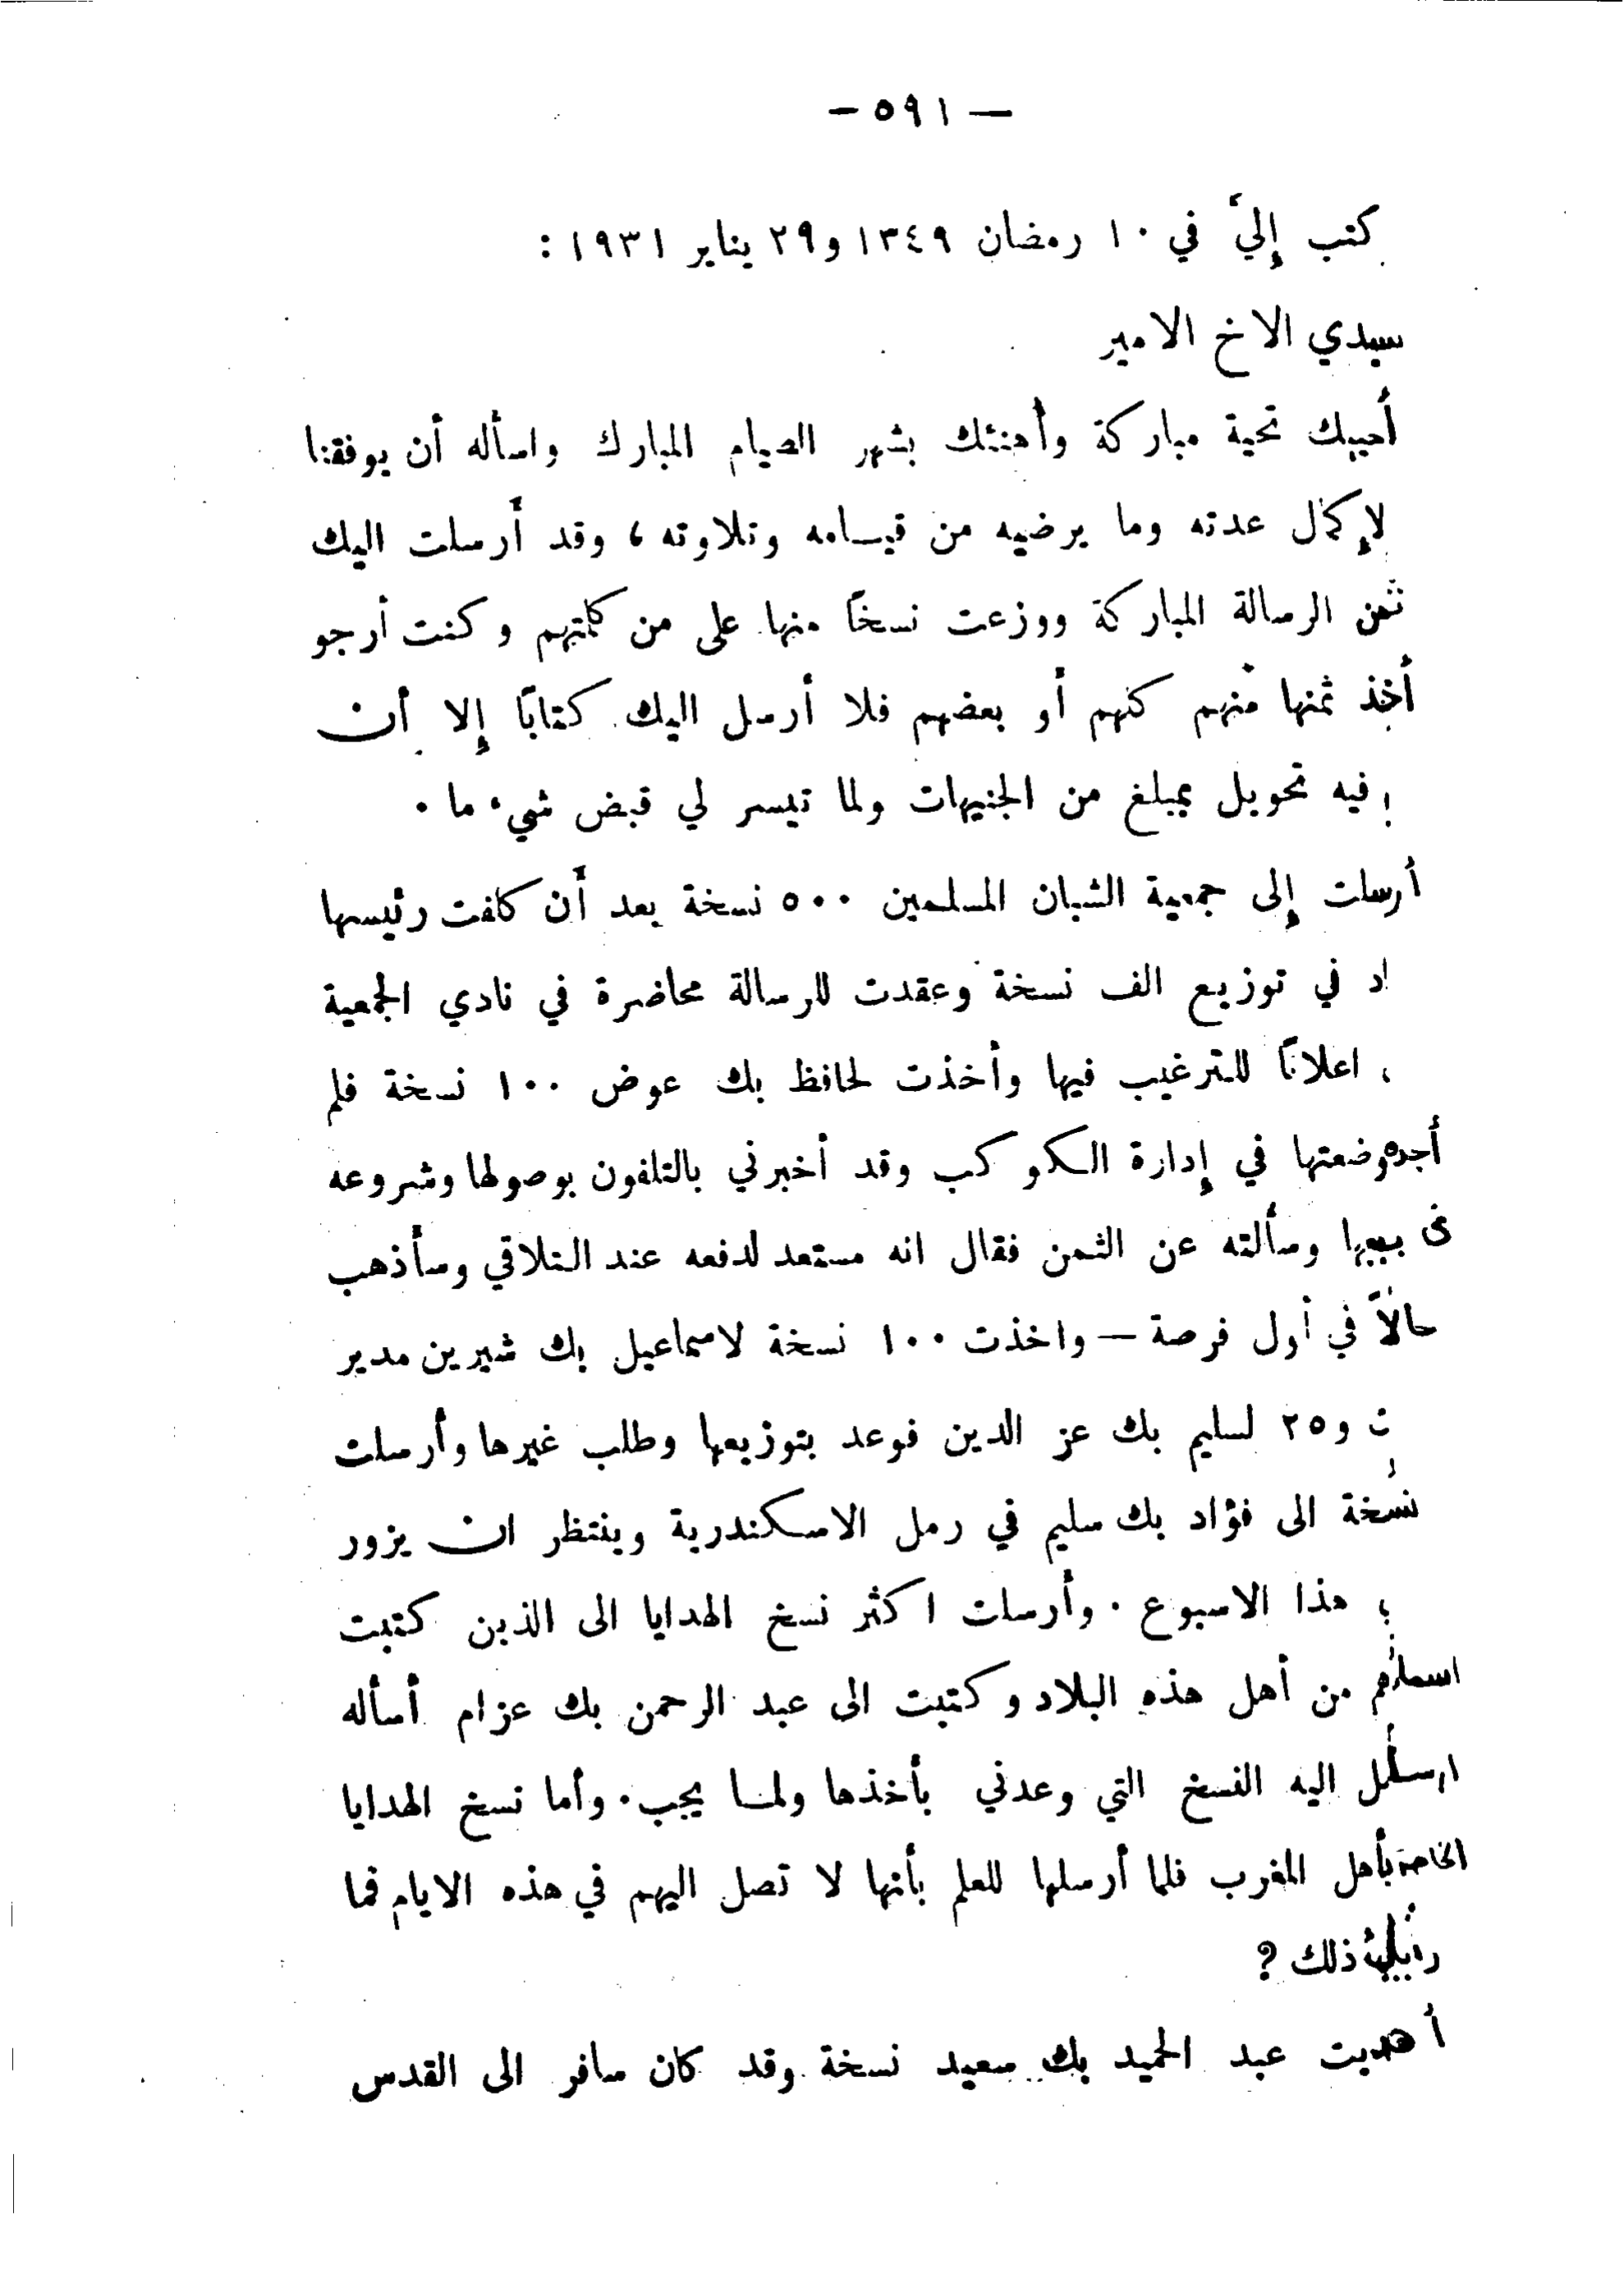 — ٥٩١ —
كتب إليّ في ١٠ رمضان ١٣٤٩ و٢٩ يناير ١٩٣١ :
سيدي الاخ الامير
أحييك تحية مباركة وأهنئك بشهر الصيام المبارك واسأله أن يوفقنا
لإكمال عدته وما يرضيه من قيامه وتلاوته ، وقد أرسلت اليك
ثمن الرسالة المباركة ووزعت نسخاً منها على من كلمتهم وكنت أرجو
أخذ ثمنها منهم كلهم أو بعضهم فلا أرسل اليك كتاباً إلا أن
فيه تحويل بمبلغ من الجنيهات ولما تيسر لي قبض شيء ما .
أرسلت إلى جمعية الشبان المسلمين ٥٠٠ نسخة بعد أن كلفت رئيسها
اد في توزيع الف نسخة وعقدت للرسالة محاضرة في نادي الجمعية
اعلاناً للترغيب فيها وأخذت لحافظ بك عوض ١٠٠ نسخة فلم
أجده وضعتها في إدارة الكوكب وقد أخبرني بالتلفون بوصولها وشروعه
في بيعها وسألته عن الثمن فقال انه مستعد لدفعه عند التلاقي وسأذهب
حالاً في أول فرصة — واخذت ١٠٠ نسخة لاسماعيل بك شيرين مدير
ت و٢٥ لسليم بك عز الدين فوعد بتوزيعها وطلب غيرها وأرسلت
نسخة الى فؤاد بك سليم في رمل الاسكندرية وينتظر ان يزور
هذا الاسبوع . وأرسلت اكثر نسخ الهدايا الى الذين كتبت
اسماءهم من أهل هذه البلاد وكتبت الى عبد الرحمن بك عزام أسأله
ارسل اليه النسخ التي وعدني بأخذها ولمـا يجب . وأما نسخ الهدايا
الخاصة بأهل المغرب فلما أرسلها للعلم بأنها لا تصل اليهم في هذه الايام فما
ذلك ؟
أهديت عبد الحميد بك سعيد نسخة وقد كان سافر الى القدس